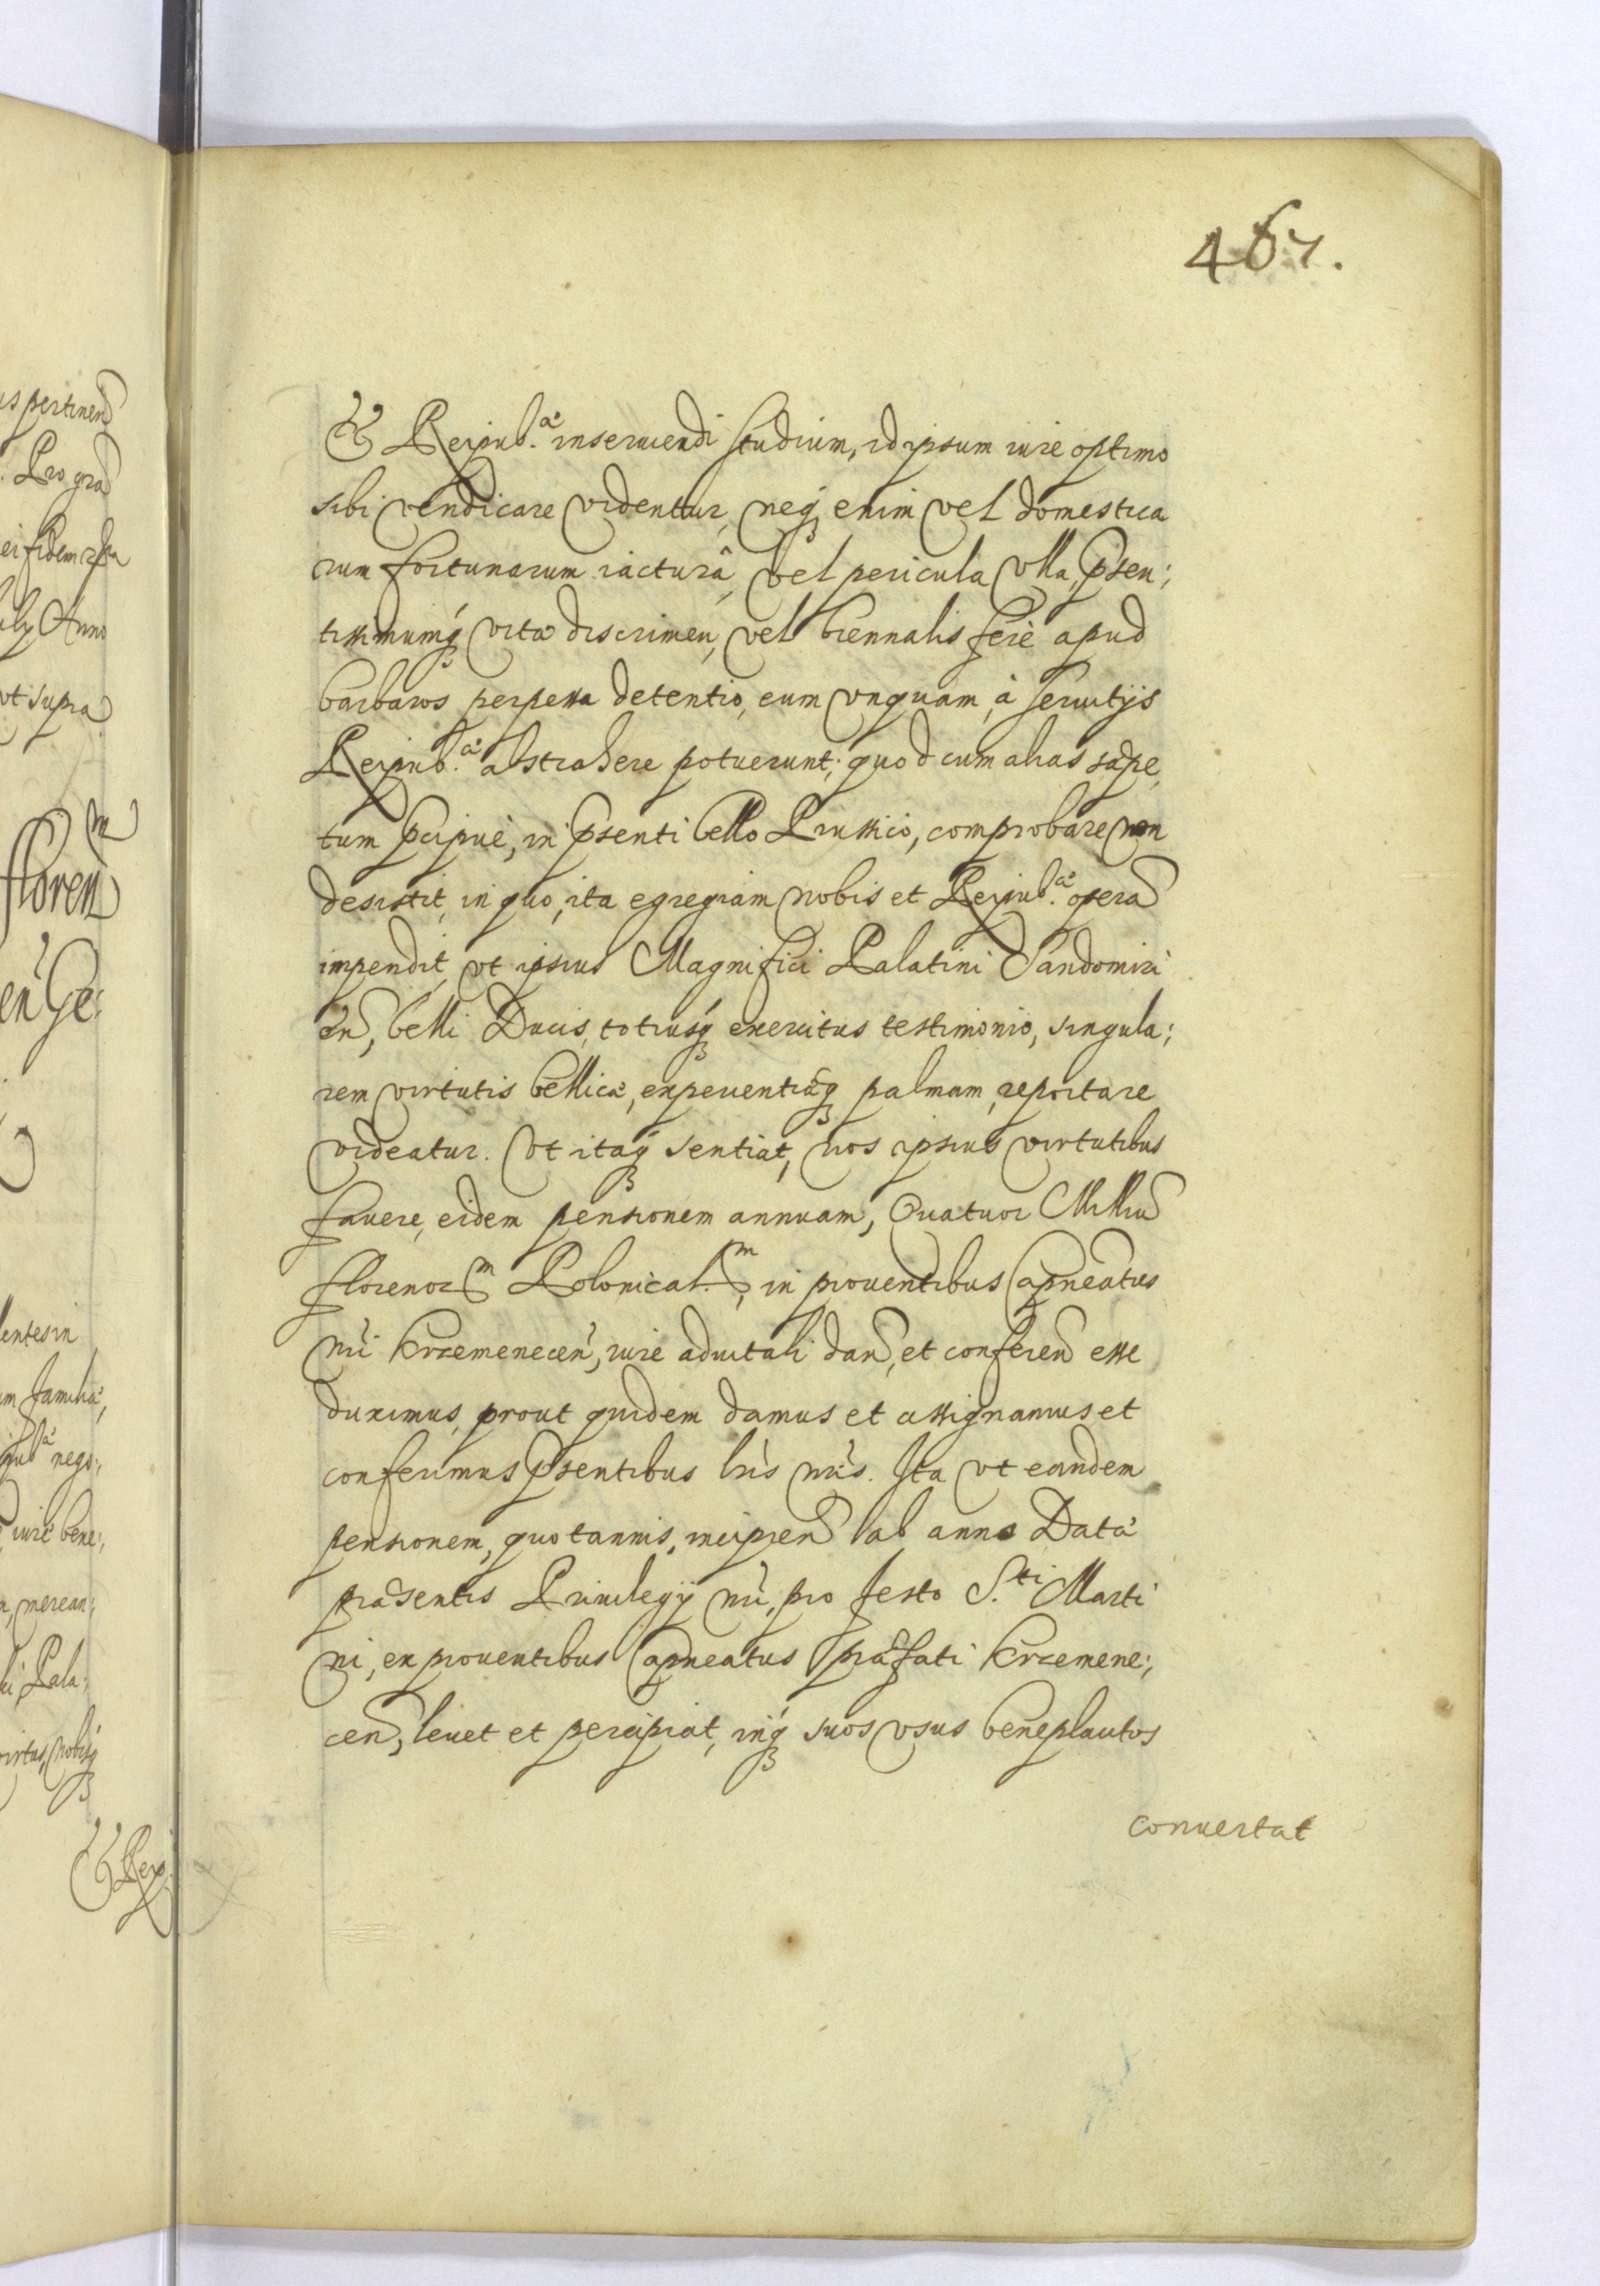 467.
& Reipub.æ inseruiendi studium, id ipsum iure optimo
sibi vendicare videntur, neq3 enim vel domestica
rum fortunarum iacturâ, vel pericula vlla, psen:,
tissimumq3 vitæ discrimen, vel biennalis ferè apud
barbaros perpessa detentio, eum vnquam, à seruitijs
Reipub.æ abstrahere potuerunt; quod cum alias sæpe,
tum pcipuè, in psenti bello Prussico, comprobare non
desistit, in quo, ita egregiam nobis et Reipub.æ operã
impendit, vt ipsius Magnifici Palatini Sandomiri
eñ, belli Ducis, totiusq3 exercitus testimonio, singula:,
rem virtutis bellicæ, experientiæq3 palmam, reportare
videatur. Vt itaq3 sentiat, nos ipsius virtutibus
fauere, eidem pensionem annuam, Quatuor Milliũ
florenorm Polonical.m, in prouentibus Capneatus
nri Krzemenecen, iure aduitali dan̄, et conferen̄ esse
duximus, prout quidem damus et assignamus et
conferimus psentibus lris nris. Ita vt eandem
pensionem, quotannis, incipien̄ ab anno Datæ
præsentis Priuilegij nri, pro festo S.ti Marti
ni, ex prouentibus Capneatus præfati Krzemene:,
cen̄, leuet et percipiat, inq3 suos vsus beneplacitos
conuertat